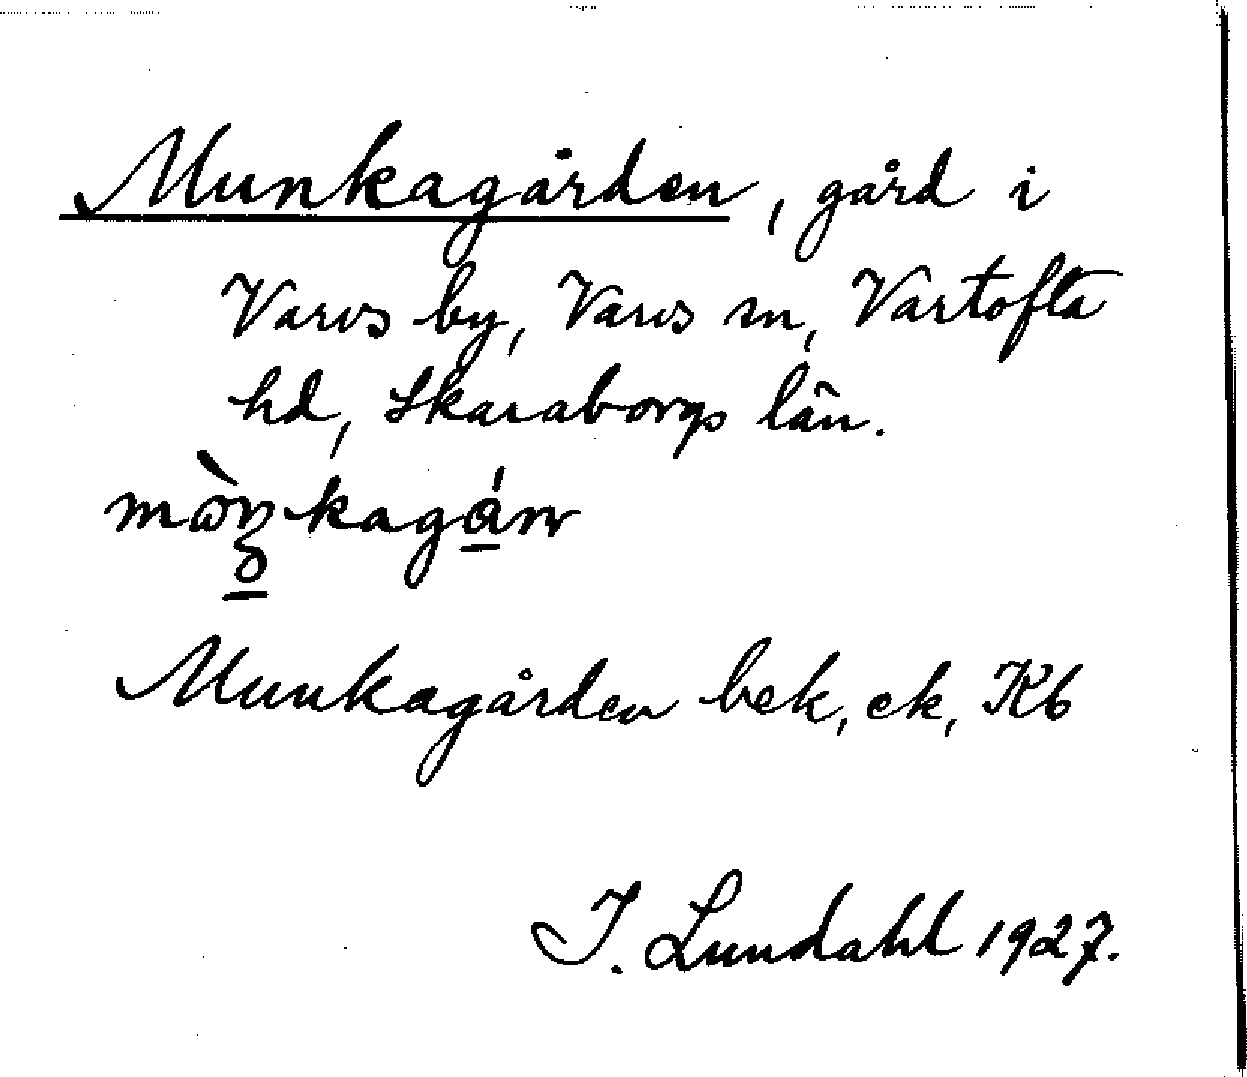 Munkagården, gård i
Varvs by, Varvs sn, Vartofta
hd, Skaraborgs län.
Munkagården bek, ek, Kb
I. Lundahl 1927.